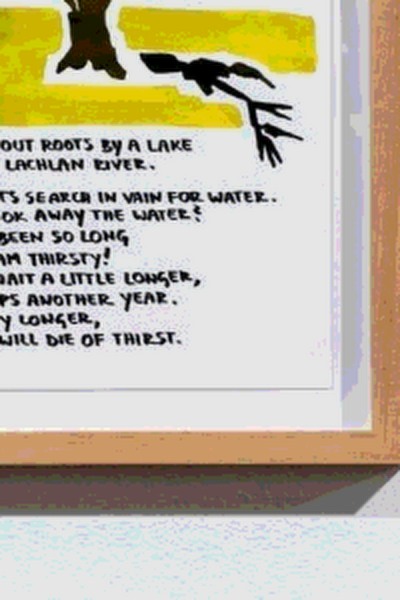 OUT ROOTS BY A LAKE
LACHLAN RIVER.
TS SEARCH IN VAIN FOR WATER.
OOK AWAY THE WATER?
BEEN SO LONG
AM THIRSTY!
WAIT A LITTLE LONGER,
PS ANOTHER YEAR.
Y LONGER,
WILL DIE OF THIRST.